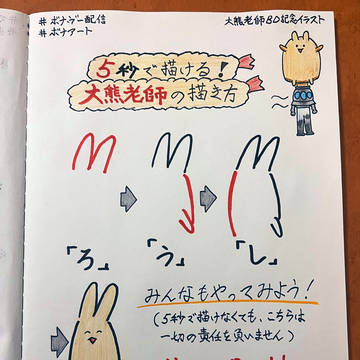 #ボナゲー配信
#ボナアート
大熊老師80記念イラスト
5秒で描ける!
大熊老師の描き方
「ろ」
「う」
「し」
みんなもやってみよう!
(5秒で描けなくても、こちらは
一切の責任を負いません)